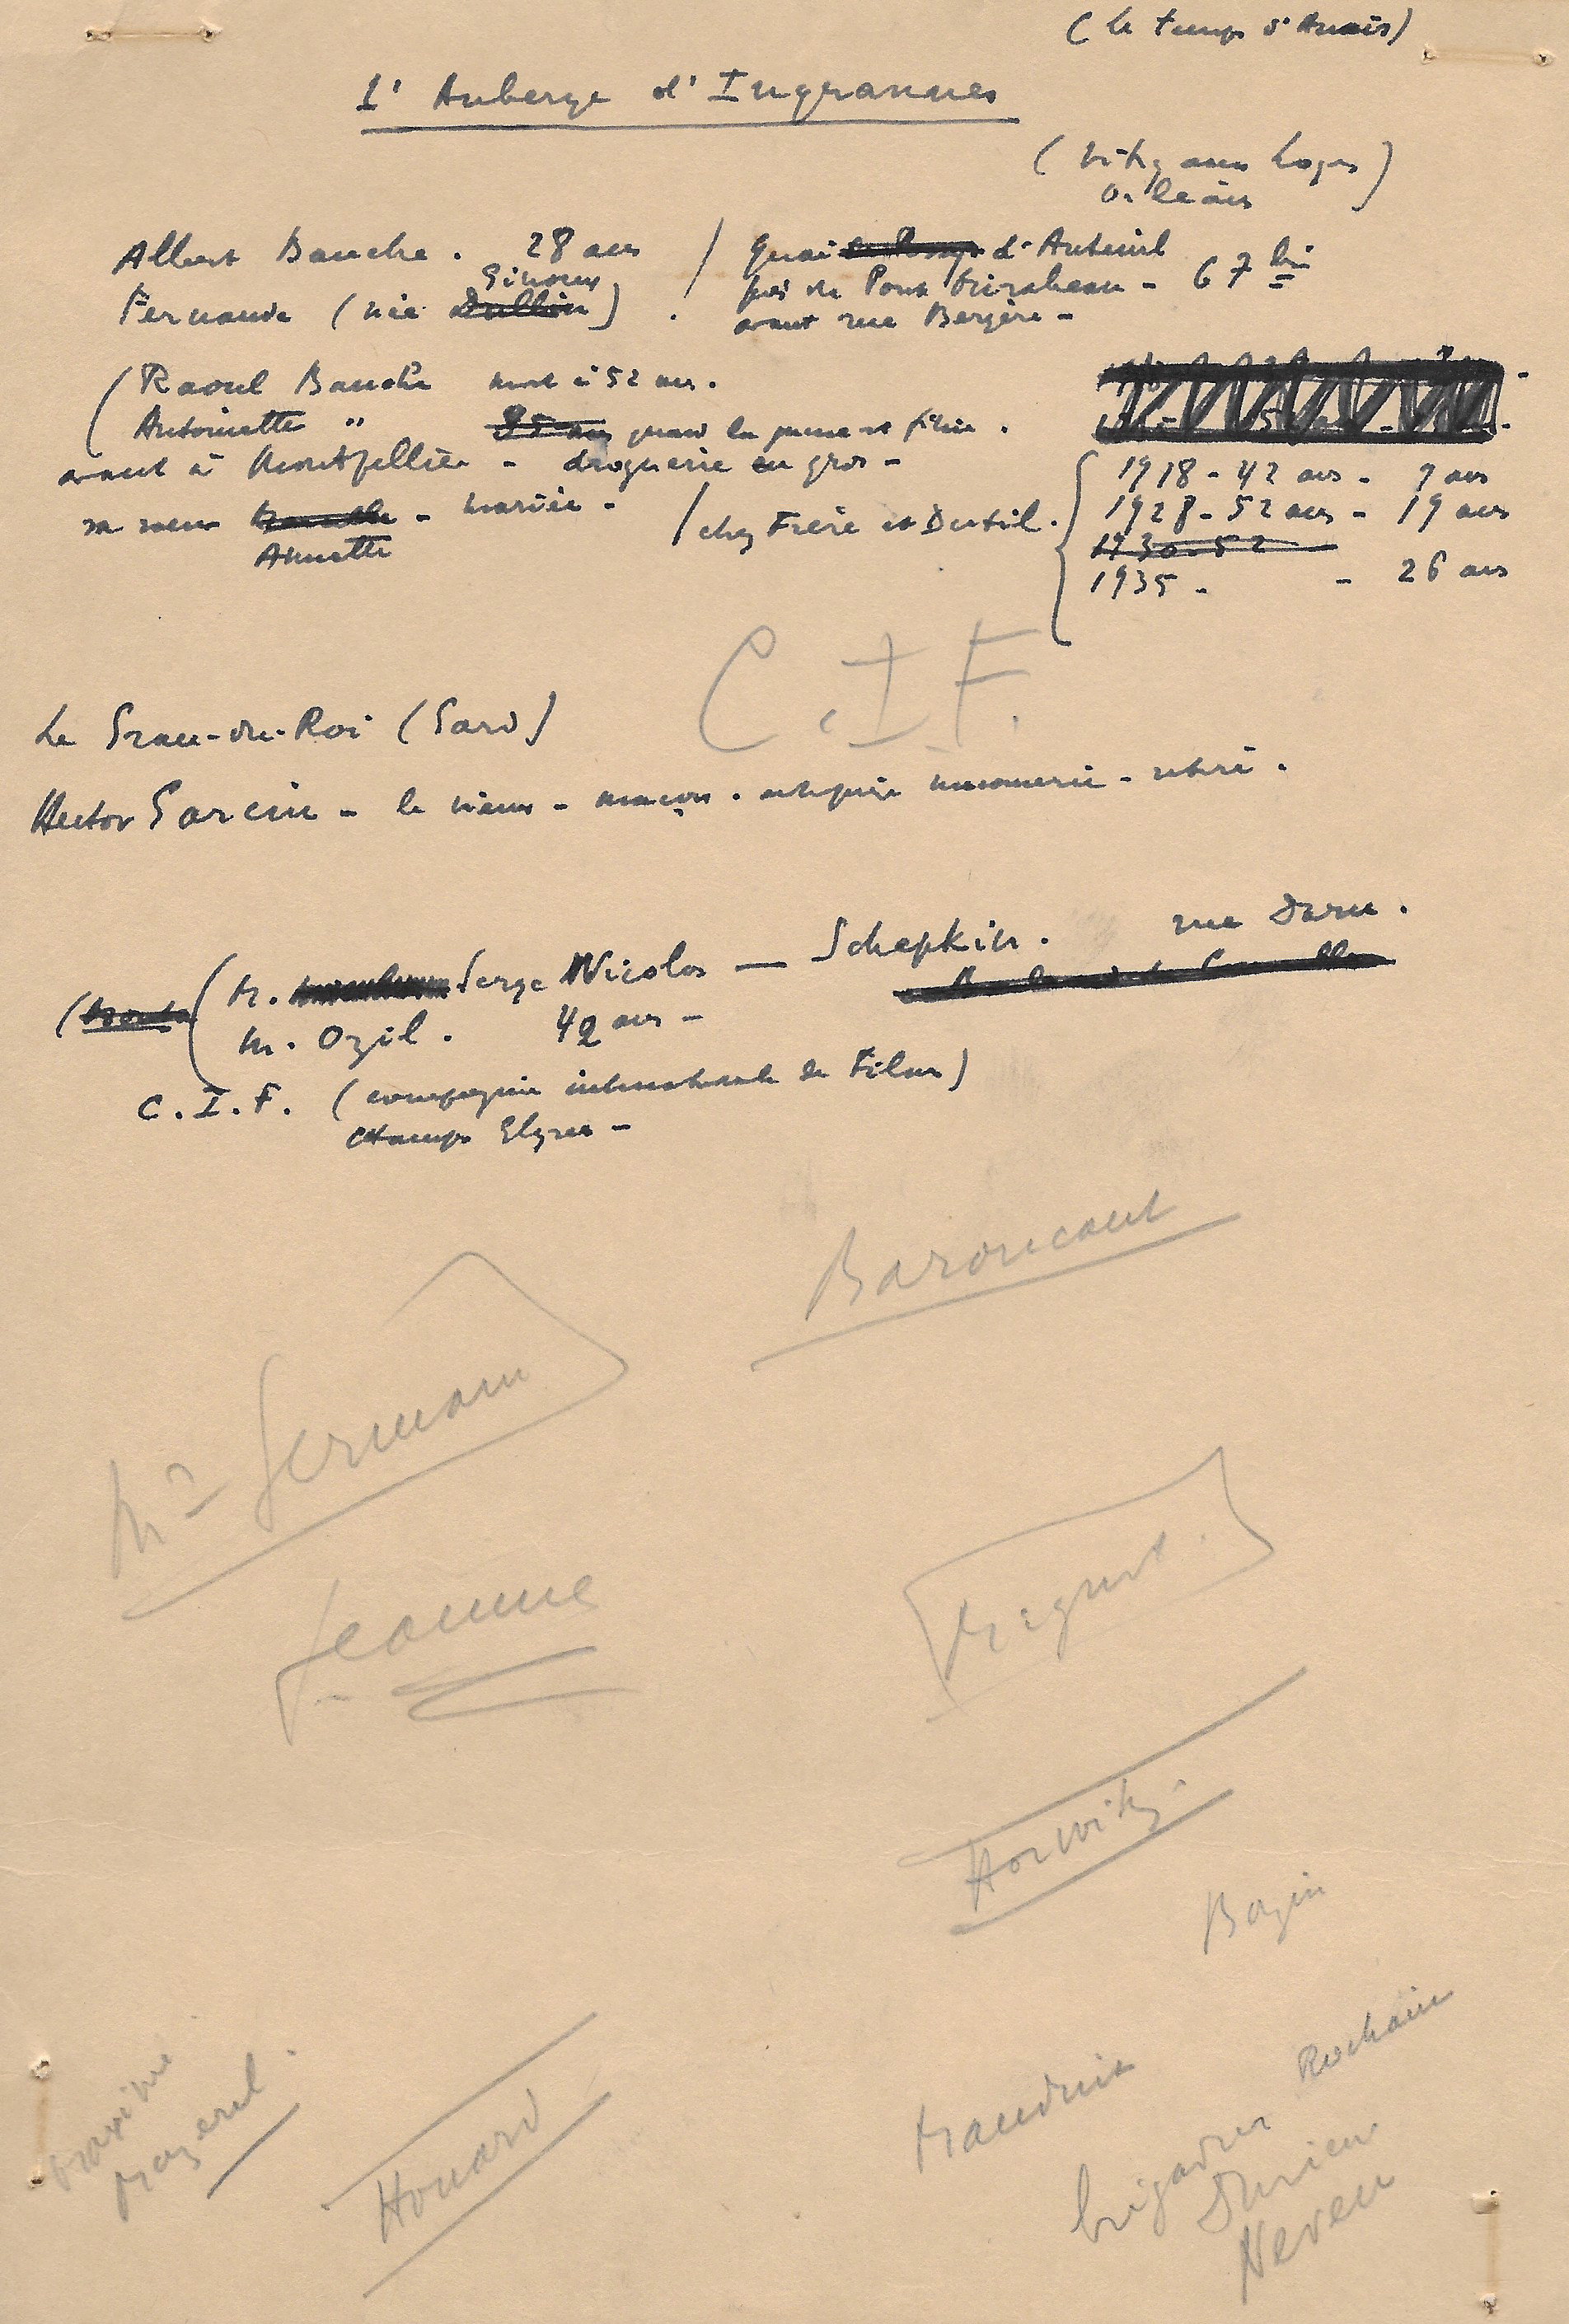 (Le temps d'Anaïs)
L'Auberge d'Ingrannes
(Vitry aux Loges)
Orléans
Albert Bauche. 28 ans / Quai d'Auteuil
Ginoux
près du Pont Mirabeau - 67 bis
Fernande (née Dullin) . avant rue Bergère -
(Raoul Bauche mort à 52 ans.
Antoinette " 85 ans quand
avant à Montpellier - droguerie en gros -
1918 - 42 ans - 9 ans
sa soeur - mariée - / chez Frère et Dutil. 1928 - 52 ans - 19 ans
Annette
1930 - 52
1935 - - 26 ans
C.I.F.
Le Grau-du-Roi (Gard)
Hector Garcin - le vieux - maçon. maçonnerie - retiré.
(M. Serge Nicolas — Schepkin. rue Daru.
M. Ozil. 42 ans -
C.I.F. (compagnie internationale de Films)
Champs Elysées -
Baroncourt
Mr Germain
Jeanne
Horwitz.
Bazin
Rochain
Mauduit
Maxime
Mazerel.
Houard
brigadier
Durieu
Neveu